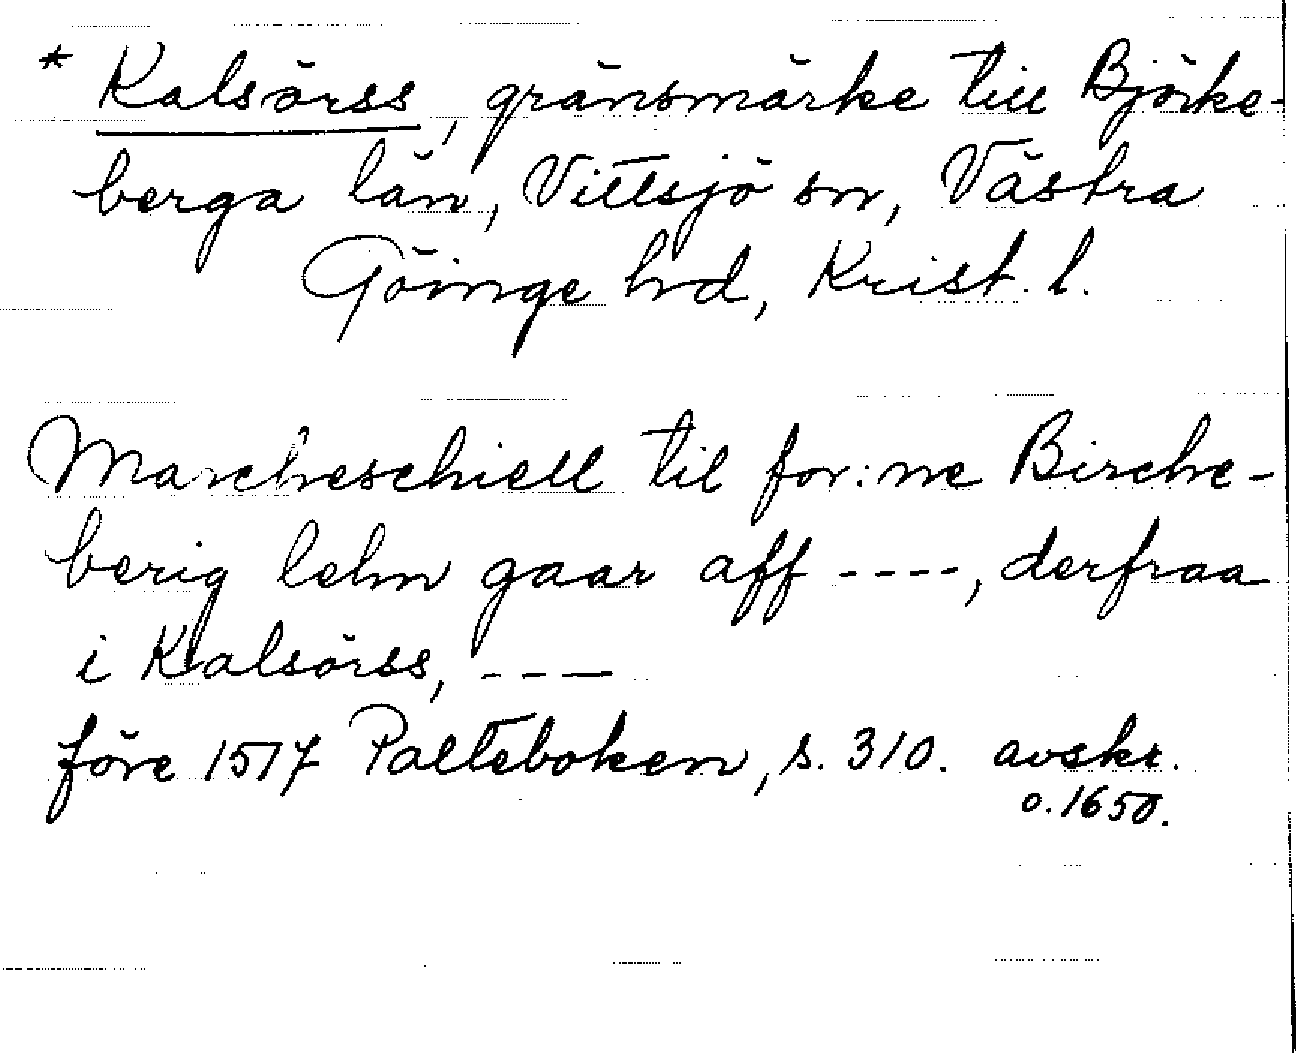 * Kalsörss, gränsmärke till Björke-
berga län, Vittsjö sn, Västra
Göinge hrd, Krist. l.
Marcheschiell til for:ne Birche-
berig lehn gaar aff ----, derfraa
i Kalsörss, ---
före 1517 Palteboken, s. 310. avskr.
o. 1650.